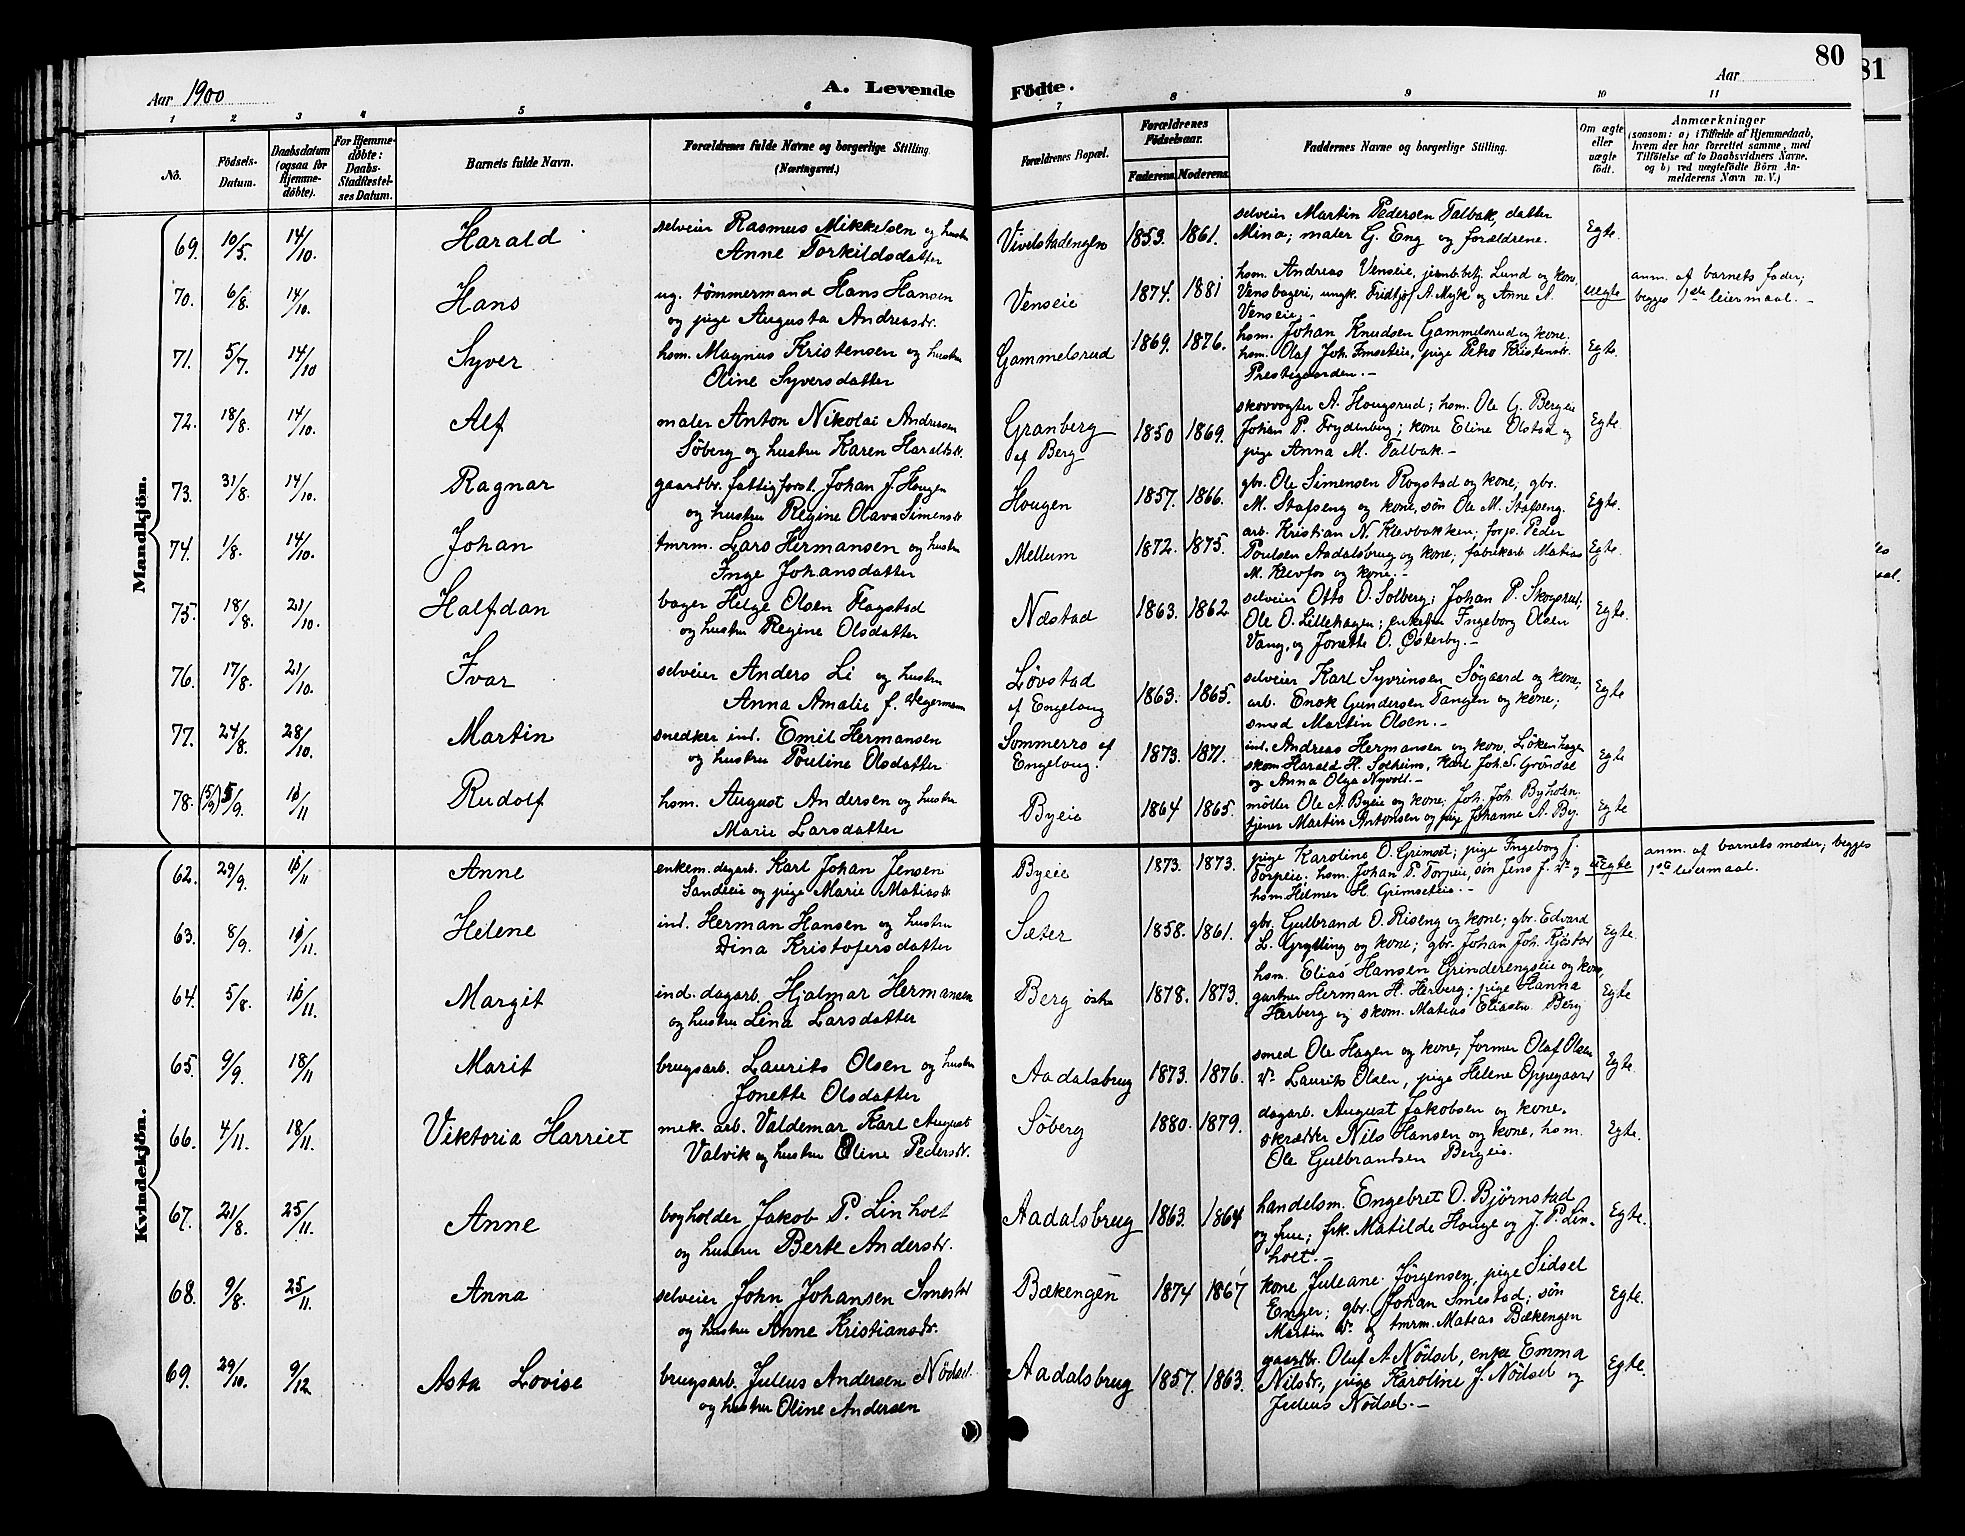 Aar 1900 A. Levende Födte. Aar 80
81
1 2 3 4 5 6 7 8 9 10 11
No. Födsels-Datum. Daabsdatum (ogsaa for Hjemme-döbte). For Hjemme-döbte: Daabs-Stadfæstel-ses Datum. Barnets fulde Navn. Forældrenes fulde Navne og borgerlige Stilling. (Næringsvei.) Forældrenes Bopæl. Forældrenes Födselsaar. Faderens. Moderens. Faddernes Navne og borgerlige Stilling. Om ægte eller uægte födt. Anmærkninger (saasom: a) i Tilfælde af Hjemmedaab, hvem der har forrettet samme, med Tilföielse af to Daabsvidners Navne, og b) ved uægtefödte Börn Anmelderens Navn m. V.)
Mandkjön.
69. 10/5 14/10. Harald selveier Rasmus Mikkelsen og hustru Vivelstadengen 1853. 1861. selveier Martin Pedersen Talbak, datter Egte.
Anne Torkildsdatter Mina; maler G. Eng og forældrene.
70. 6/8 14/10. Hans ug. tömmermand Hans Hansen Venseie 1874. 1881 hsm. Andreas Venseie, jernb.betj. Lund og kone uegte anm. af barnets fader;
og pige Augusta Andreasdr. Vensbageri, ungk. Fridtjof A. Myk og Anne A. begges 1ste leiermaal. -
Venseie. -
71. 5/7. 14/10 Syver hsm. Magnus Kristensen og hustru Gammelsrud 1869. 1876. hsm. Johan Knudsen Gammelsrud og kone; Egte.
Oline Syversdatter hsm. Olaf Joh. pige Petra Kristensdr.
Prestegaarden. -
72. 18/8. 14/10. Alf maler Anton Nikolai Andersen Granberg 1850 1869. skovvogter A. Hougsrud; hsm. Ole G. Bergeie Egte.
Söberg og hustru Karen Haraldsdr. af Berg Johan P. Frydenberg; kone Eline Olstad og
pige Anna M. Talbak -
73. 31/8. 14/10. Ragnar gaardbr. fattigforst. Johan J. Hougen Hougen 1857. 1866. gbr. Ole Simensen Rogstad og kone; gbr. Egte.
og hustru Regine Olava Simensdr. M. Stafseng og kone, sön Ole M. Stafseng.
74. 1/8. 14/10. Johan tmrm. Lars Hermansen og hustru Mellum 1872. 1875. arb. Kristian N. Klevbakken; forp. Peder Egte.
Inge Johansdatter Poulsen Aadalsbrug og kone; fabrikarb. Matias
M. Klevfos og kone. -
75. 18/8. 21/10. Halfdan bager Helge Olsen Flagstad Næstad 1863. 1862 selveier Otto O. Solberg; Johan P. Skogsrud; Egte.
og hustru Regine Olsdatter Ole O. Lillehagen; enkefru Ingeborg Olsen
Vang, og Jonette O. Österby. -
76. 17/8. 21/10. Ivar selveier Anders Li og hustru Lövstad 1863. 1865. selveier Karl Syvrinsen Sögaard og kone; Egte
Anna Amalie f. Wegermann af Engelaug arb. Enok Gundersen Tangen og kone;
smed Martin Olsen. -
77. 24/8. 28/10. Martin snedker ind. Emil Hermansen Sommerro af 1873. 1871. ind. Andreas Hermansen og kone, Lökenhagen Egte
og hustru Pouline Olsdatter Engelaug. skom Harald H. Solheim, Karl Joh. S. Gröndal
og Anna Olga Nyvold. -
78. (5/9) 5/9. 11/11 Rudolf hsm. August Andersen og hustru Byeie 1864 1865. möller Ole A. Byeie og kone; Joh. Joh. Byholen Egte
Marie Larsdatter tjener Martin Antonsen og pige Johanne A. By.
Kvindekjön.
62. 29/9. 11/11 Anne enkem. dagarb. Karl Johan Jensen Byeie 1873. 1873. pige Karoline O. Grimset; pige Ingeborg J. uegte anm. af barnets moder; begges
Sandeie og pige Marie Matiasdr. Torpeie; hsm. Johan P. Torpeie, sön Jens J. do og 1ste leiermaal.
hsm. Hilmer H. Grimseteie. -
63. 8/9. 11/11. Helene ind. Herman Hansen og hustru Sæter 1858. 1861. gbr. Gulbrand O. Riseng og kone; gbr. Edvard Egte.
Dina Kristofersdatter L. Grytting og kone; gbr. Johan Joh. Kjöstad
64. 5/8. 11/11. Margit ind. dagarb. Hjalmar Hermansen Berg östre 1878. 1873. hsm. Elias Hansen Grinderengseie og kone, Egte
og hustru Lina Larsdatter gartner Herman H. Herberg; pige Hanna
Herberg og skom. Matias Eliassen Berg
65. 9/9. 18/11 Marit brugsarb. Laurits Olsen og hustru Aadalsbrug 1873. 1876. smed Ole Hagen og kone, former Olaf Olsen Egte.
Jonette Olsdatter do Laurits Olsen, pige Helene Oppegaard
66. 4/11. 18/11. Viktoria Harriet mek. arb. Valdemar Karl August Söberg 1880. 1879. dagarb. August Jakobsen og kone. Egte.
Valvik og hustru Oline Pedersdr. skrædder Nils Hansen og kone, hsm.
Ole Gulbrandsen Bergeie.
67. 21/8. 25/11. Anne bogholder Jakob P. Linholt Aadalsbrug 1863. 1864 handelsm. Engebret O. Björnstad Egte.
og hustru Berte Andersdr. og frue; frk. Matilde Houge og J. P. Lin-
holt. -
68. 9/8. 25/11. Anna selveier John Johansen Smestad Bækengen 1874 1867 kone Juleane Jörgensen, pige Sidsel Egte.
og hustru Anne Kristiansdr. Enger; gbr. Johan Smestad; sön
Martin do og tmrm. Matias Bækengen
69. 29/10. 9/12. Asta Lovise brugsarb. Julius Andersen Nödsel Aadalsbrug 1857. 1863. gaardbr. Oluf A. Nödsel, enke Emma Egte.
og hustru Oline Andersen Nilsdr., pige Karoline J. Nödsel og
Julius Nödsel. -